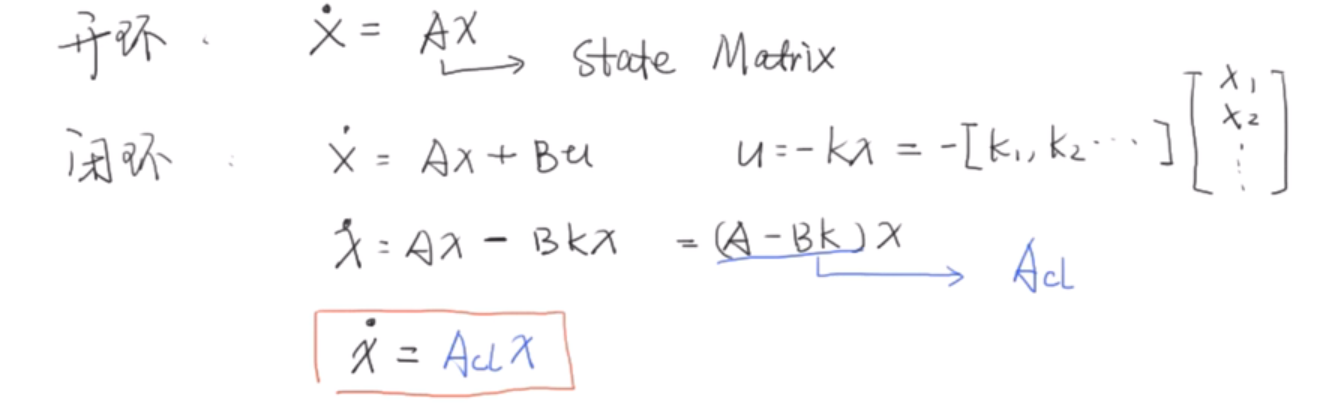 开环. ẋ = Ax → State Matrix
闭环: ẋ = Ax + Bu u = -kx = -[k₁, k₂ ⋯] [x₁ x₂ ⋮]
ẋ = Ax - Bkx = (A - Bk)x → Acl
ẋ = Acl x